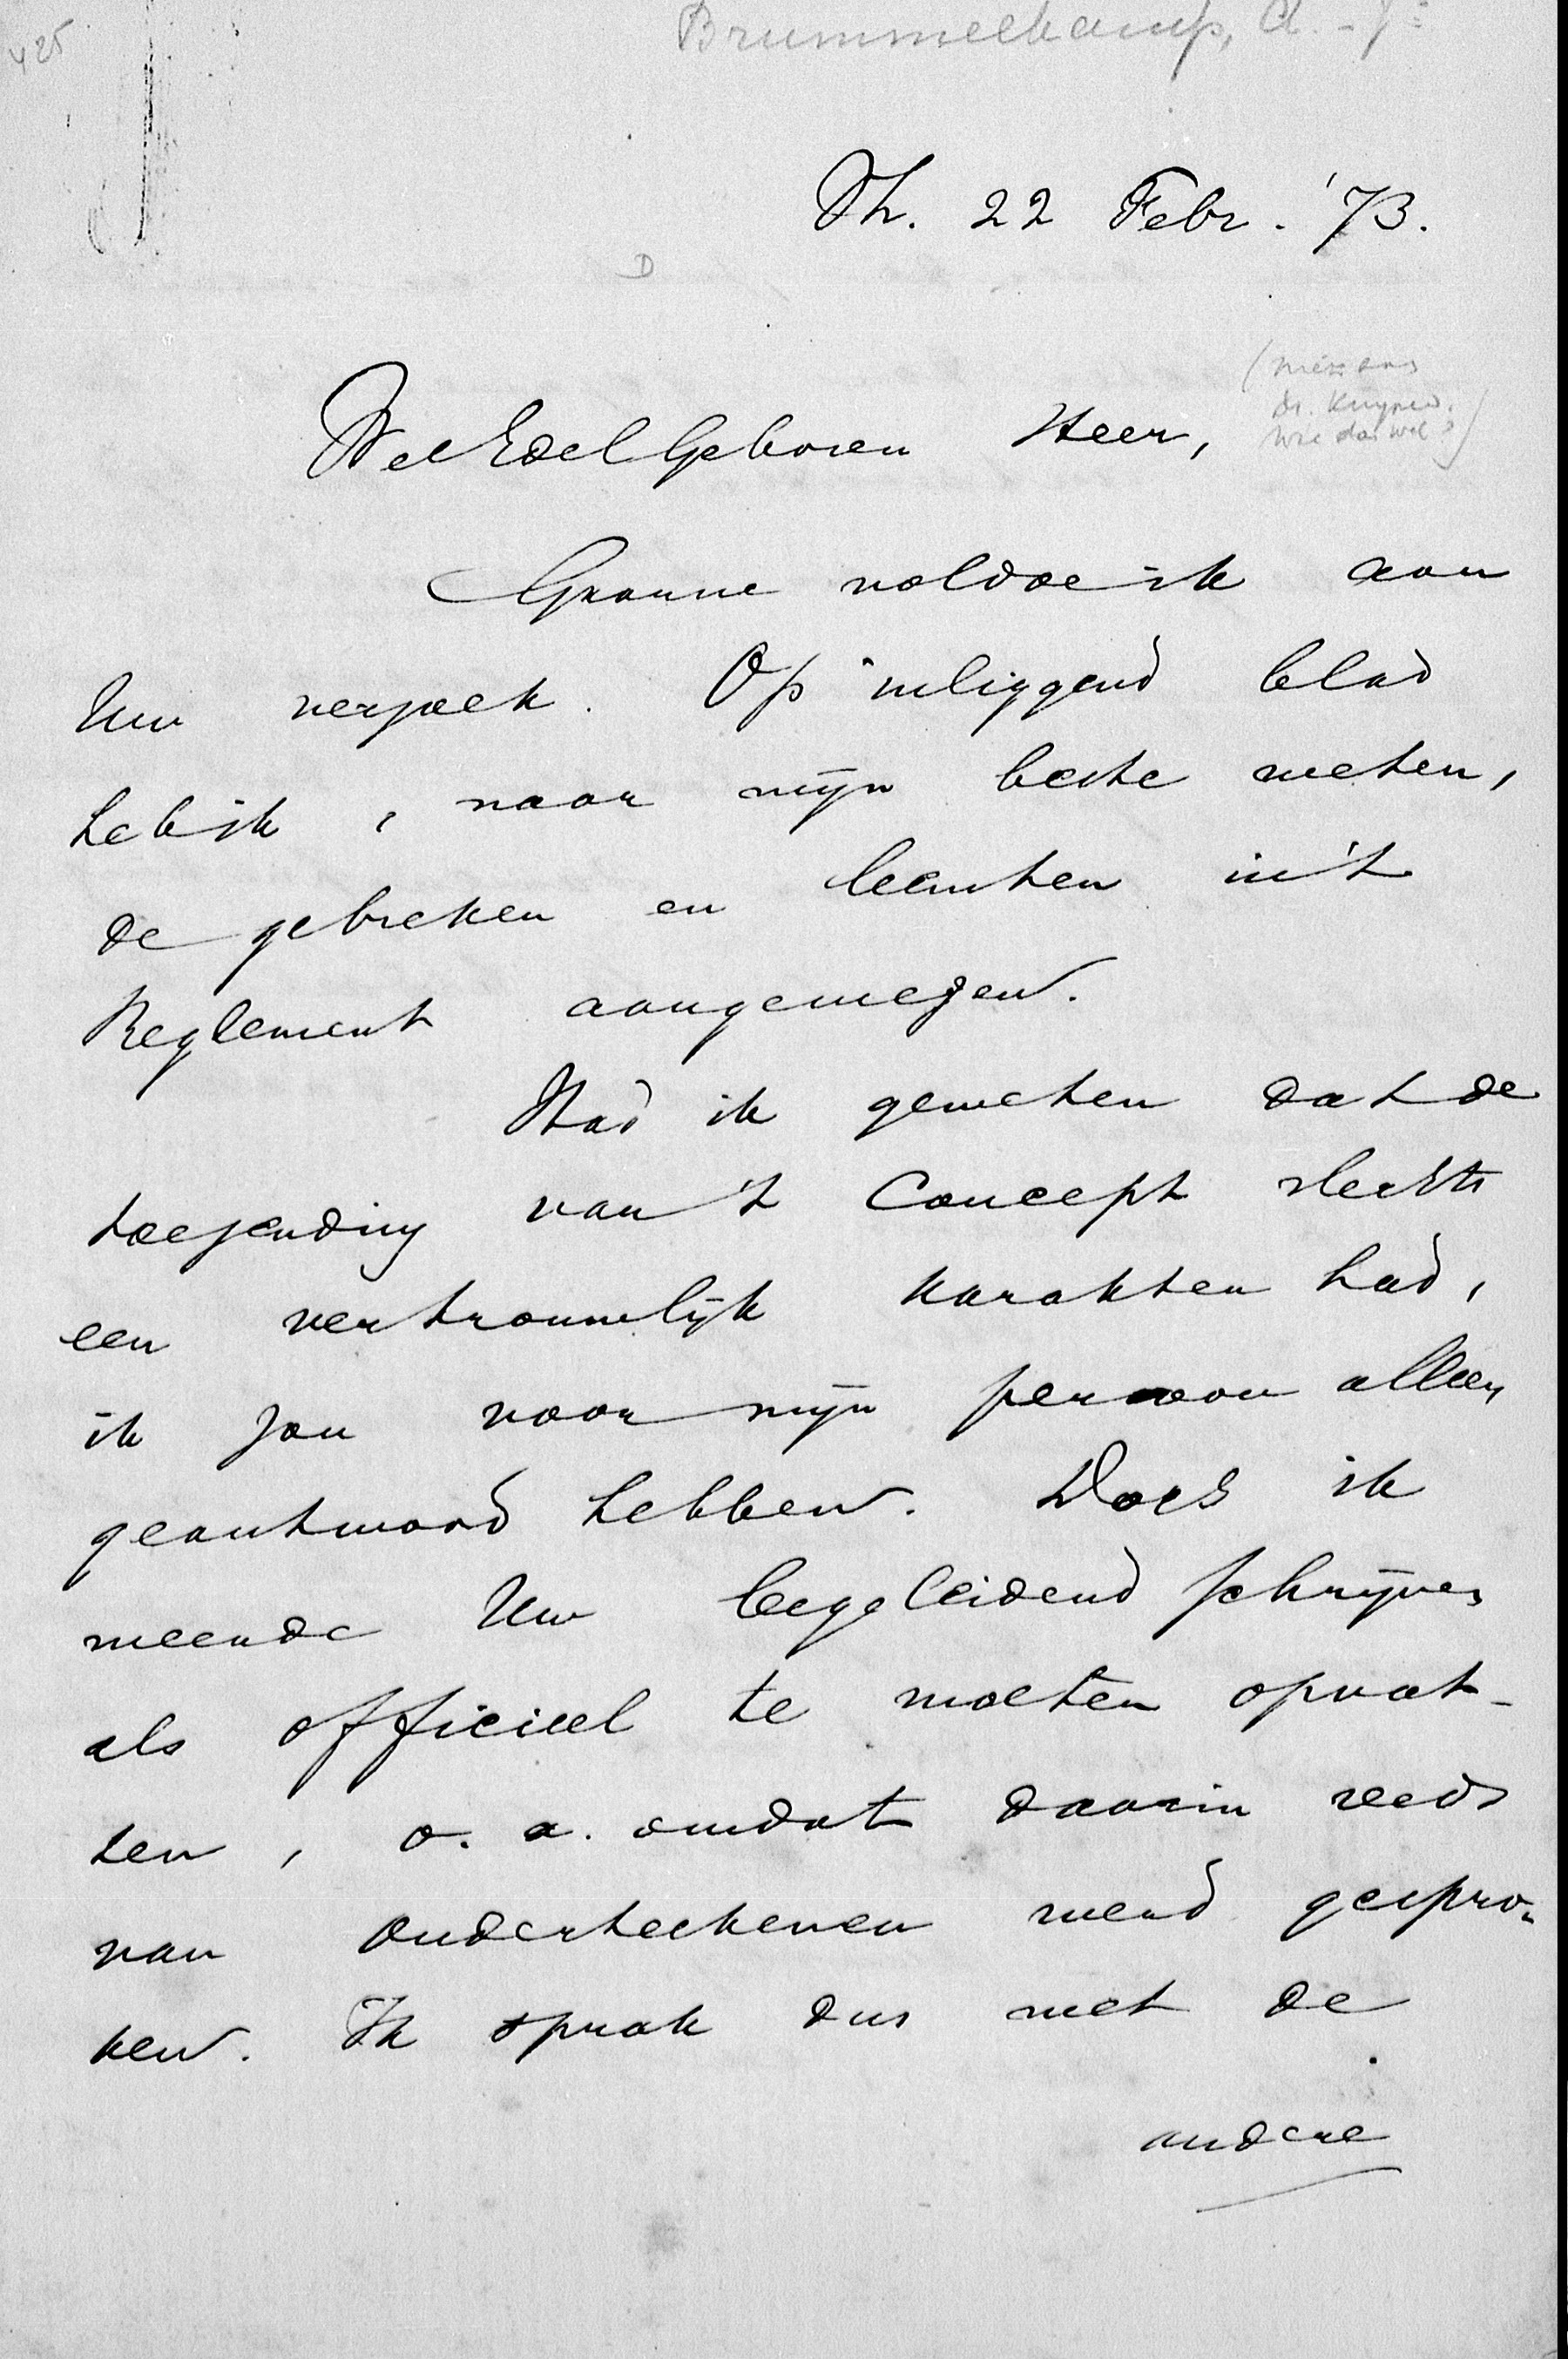 425
Brummelkamp, A. - Jr
Th. 22 Febr. '73.
D
WelEdelGeboren Heer,
(niet aan
Dr. Kuyper.
wie dan wel?)
Gaarne voldoe ik aan
Uw verzoek. Op inliggend blad
heb ik, naar mijn beste weten,
de gebreken en leemten in 't
Reglement aangewezen.
Had ik geweten dat de
toezending van 't Concept slechts
een vertrouwelijk karakter had,
ik zou voor mijn persoon alleen
geantwoord hebben. Doch ik
meende Uw begeleidend schrijven
als officieel te moeten opvat-
ten, o. a. omdat daarin reeds
van onderteekenen werd gespro-
ken. Ik sprak dus met de
andere